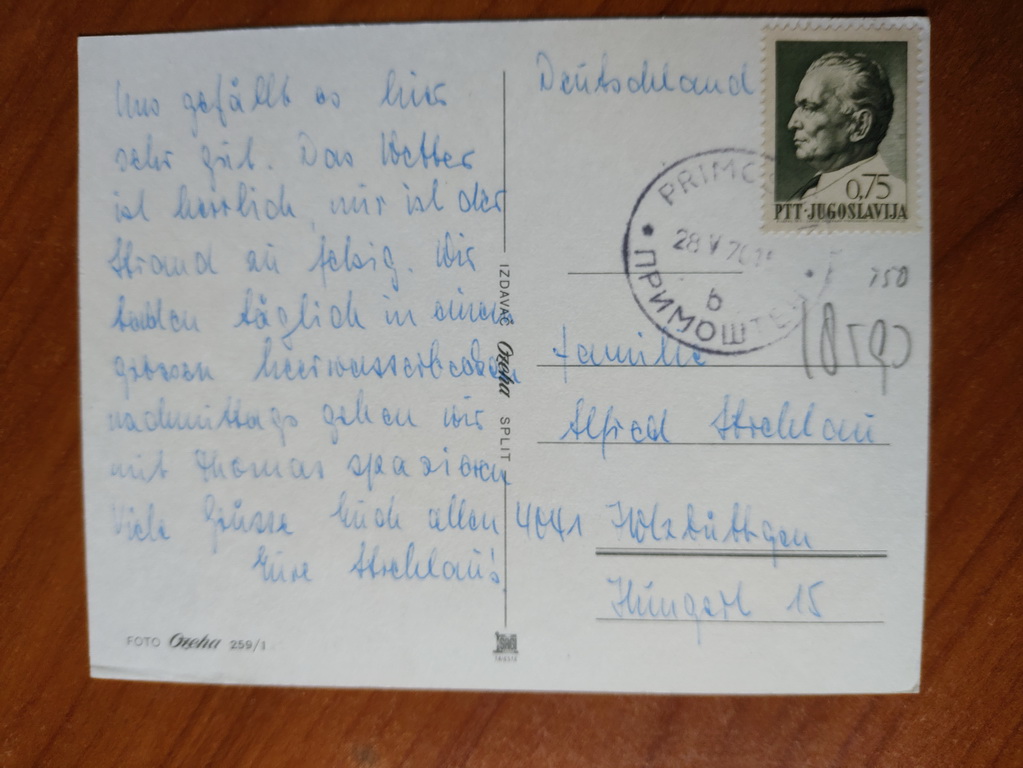 Uns gefällt es hier
sehr gut. Das Wetter
ist herrlich, mir ist der
Strand zu felsig. Wir
baden täglich in einem
grossen Meerwasserbecken
nachmittags gehen wir
mit Thomas spazieren
Viele Grüsse Euch allen
Eure Strehlau's
FOTO Oreha 259/1
IZDAVAČ Oreha SPLIT
Deutschland
0,75
PTT·JUGOSLAVIJA
PRIMO
28 V 70
б
ПРИМОШТЕ
350
Familie
Alfred Strehlau
4041 Holzbüttgen
Hüngert 15